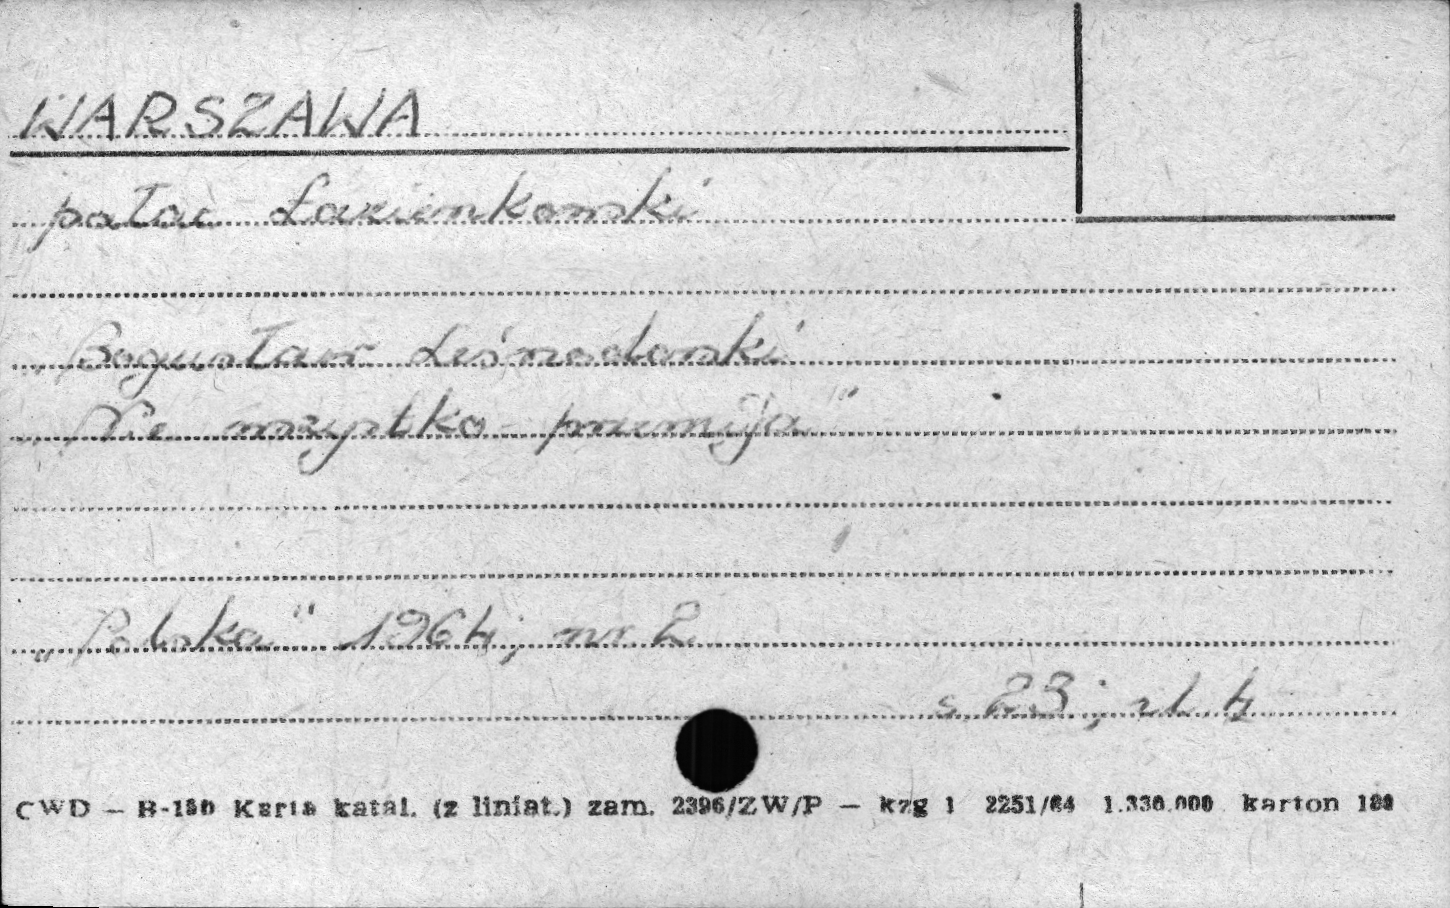 WARSZAWA
pałac Łazienkowski
Bogusław Leśnodorski
„Nie wszystko przemija"
„Polska" 1964; nr 2
s. 23; il. 4
CWD — B-150 Karta katal. (z liniat.) zam. 2396/ZW/P — kzg 1 2251/64 1.330.000 karton